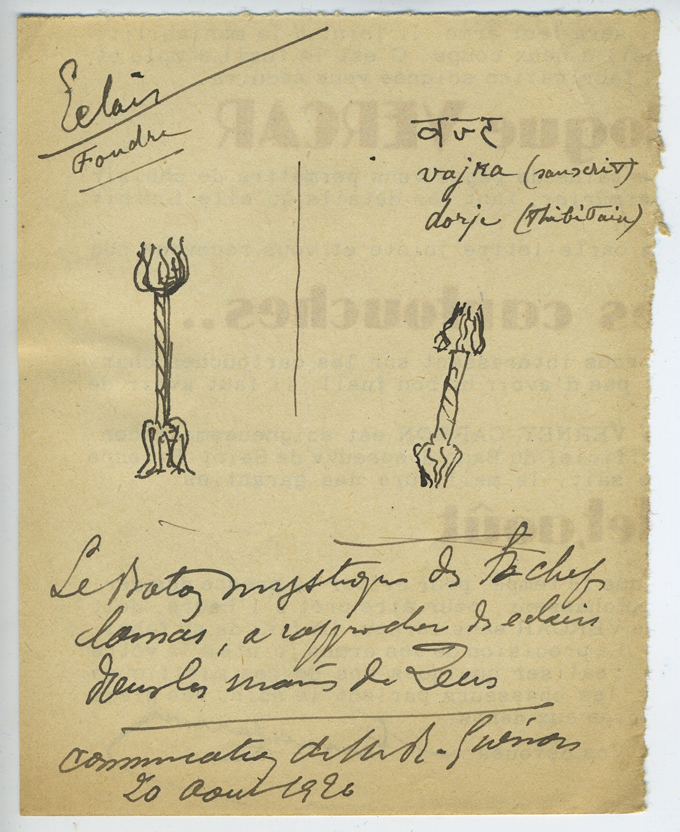 Eclair
Foudre
वज्र
vajra (sanscrit)
dorje (thibétain)
Le Baton mystique des chefs
lamas, a rapprocher des eclairs
dans les mains de Zeus
communication de Mr R. Guénon
20 Aout 1926